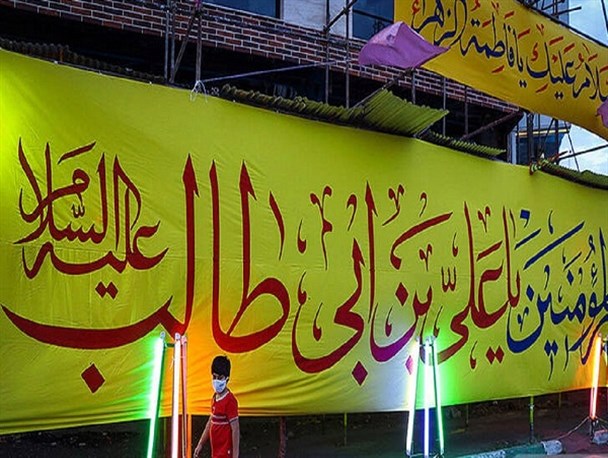 لامُ عَلَیْكِ یا فاطِمَةُ الزَّهْراء
لمؤمِنین یا عَلیِّ بنِ ابی طالب علیه السَّلام